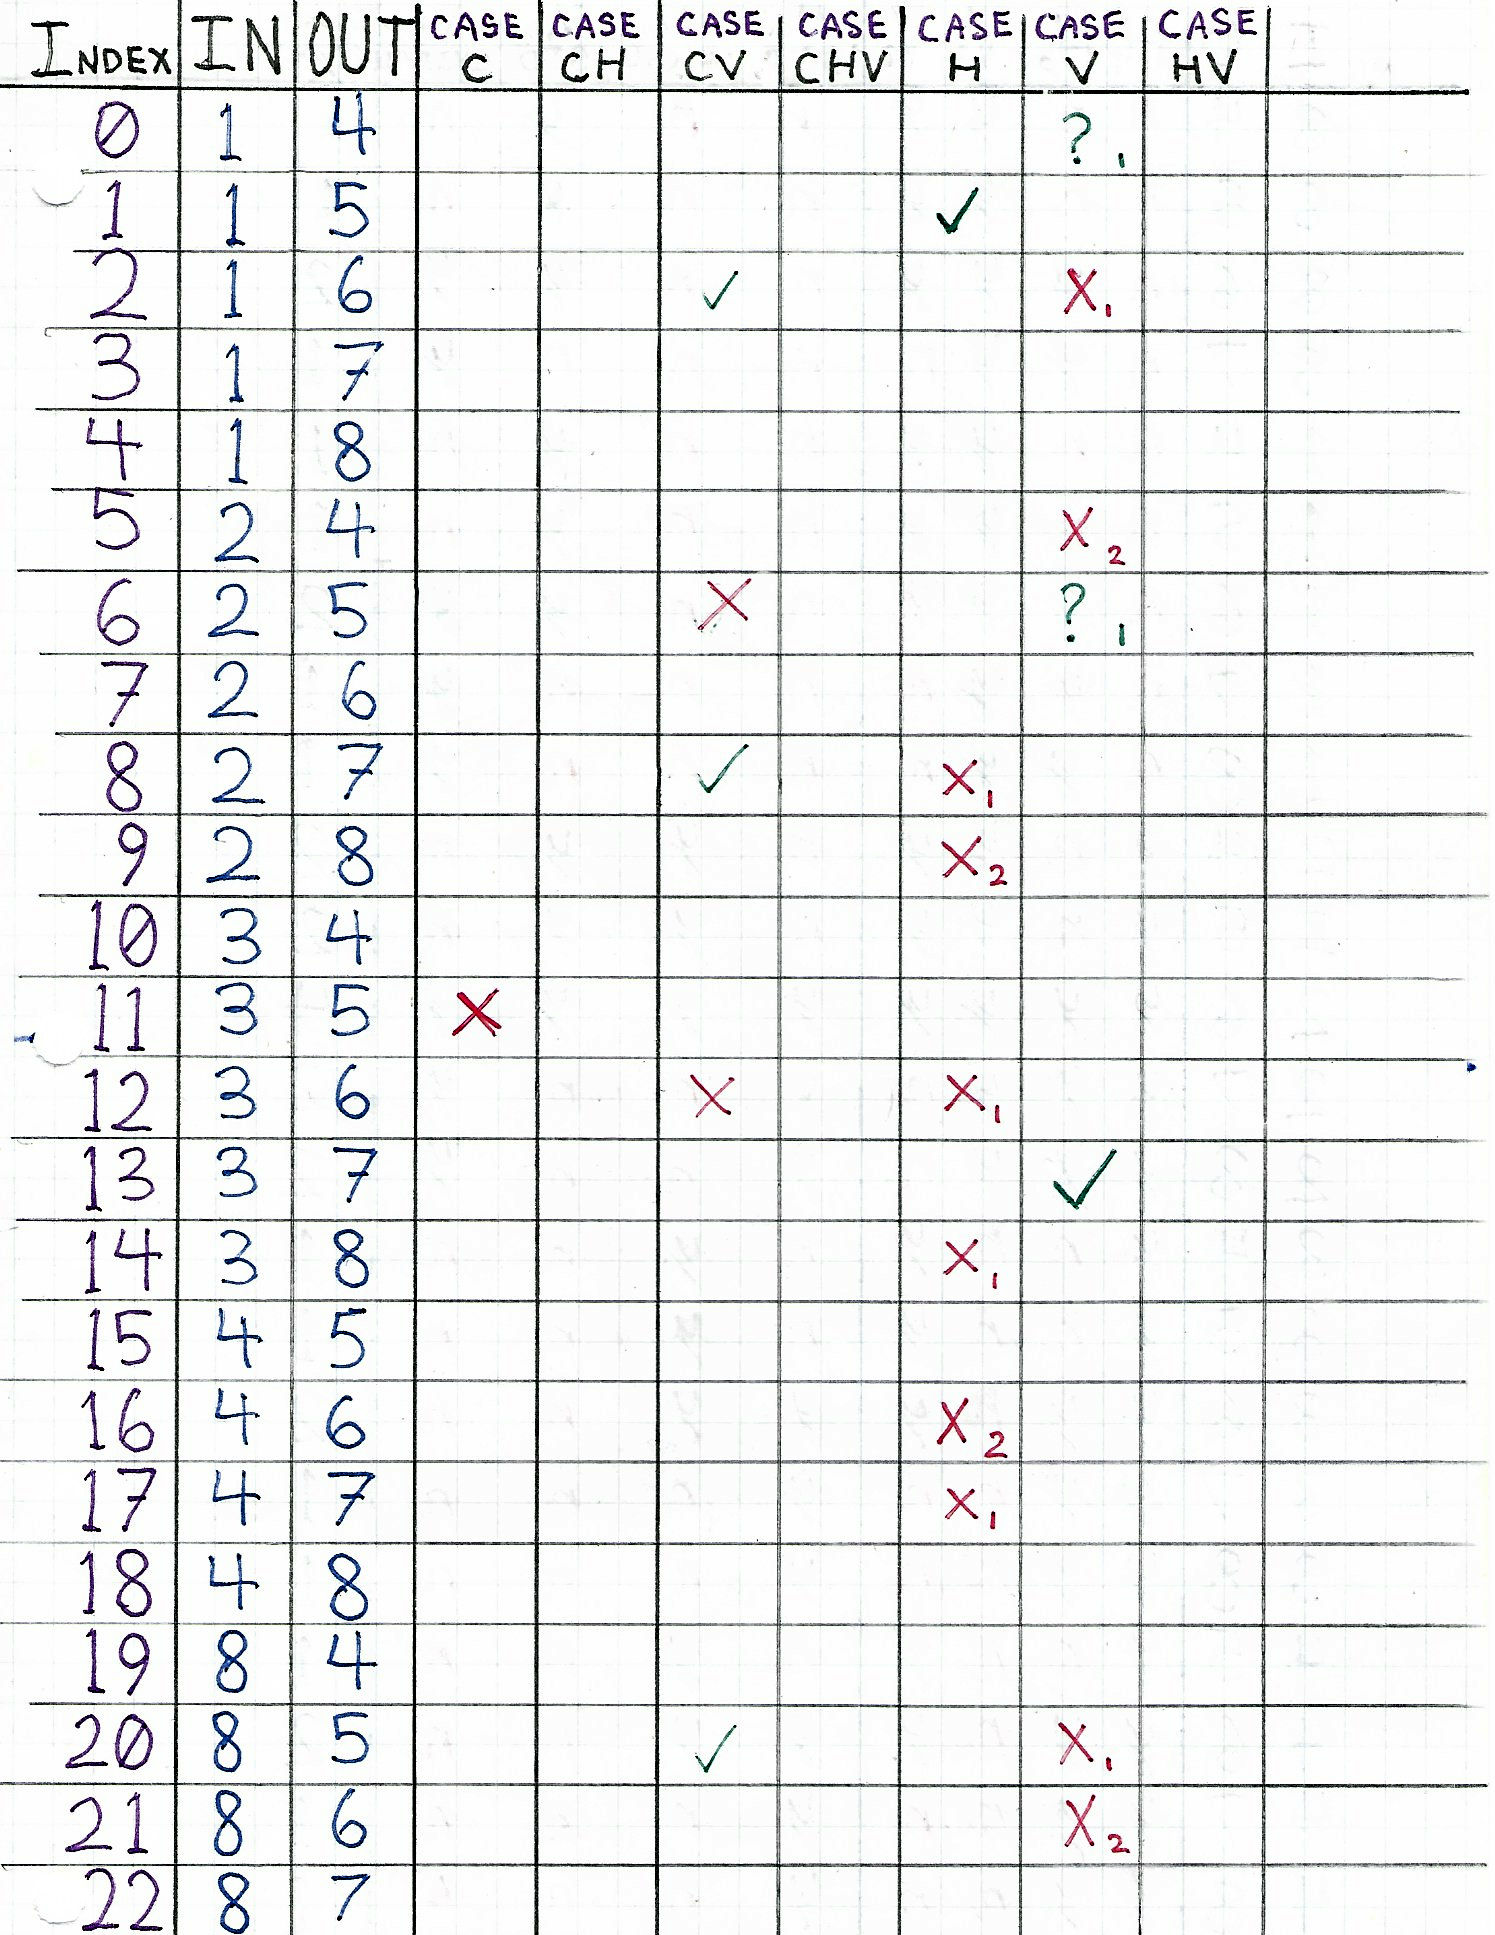 INDEX IN OUT CASE C CASE CH CASE CV CASE CHV CASE H CASE V CASE HV
0 1 4 ? 1
1 1 5 ✓
2 1 6 ✓ X 1
3 1 7
4 1 8
5 2 4 X 2
6 2 5 X ? 1
7 2 6
8 2 7 ✓ X 1
9 2 8 X 2
10 3 4
11 3 5 X
12 3 6 X X 1
13 3 7 ✓
14 3 8 X 1
15 4 5
16 4 6 X 2
17 4 7 X 1
18 4 8
19 8 4
20 8 5 ✓ X 1
21 8 6 X 2
22 8 7